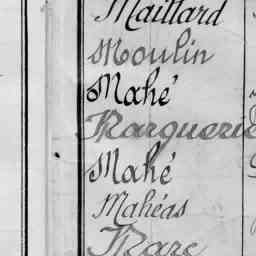 Maillard
Moulin
Mahé
Marguerie
Mahé
Mahéas
Marc